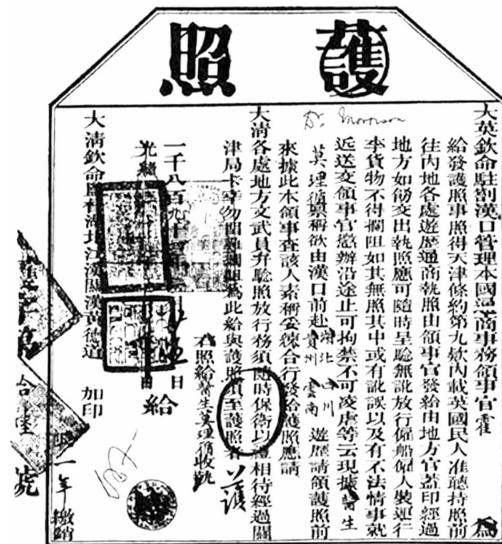 護照
Dr. Morrison
大英欽命駐劄漢口管理本國通商事務領事官霍 為
給發護照事照得天津條約第九款內載英國民人准聽持照前
往內地各處遊歷通商執照由領事官發給由地方官蓋印經過
地方如飭交出執照應可隨時呈驗無訛放行僱船僱人裝運行
李貨物不得攔阻如其無照其中或有訛誤以及有不法情事就
近送交領事官懲辦沿途止可拘禁不可凌虐等云現據醫生
莫理循稟稱欲由漢口前赴湖北四川貴州雲南遊歷請領護照前
來據此本領事查該人素稱妥練合行發給護照應請
大清各處地方文武員弁驗照放行務須隨時保衛以禮相待經過關
津局卡幸勿留難攔阻為此給與護照須至護照者
右照給醫生莫理循收執
一千八百九十
日
光緒
日
給
護
大清欽命監督湖北江漢關漢黃德道 加印
限一年繳銷